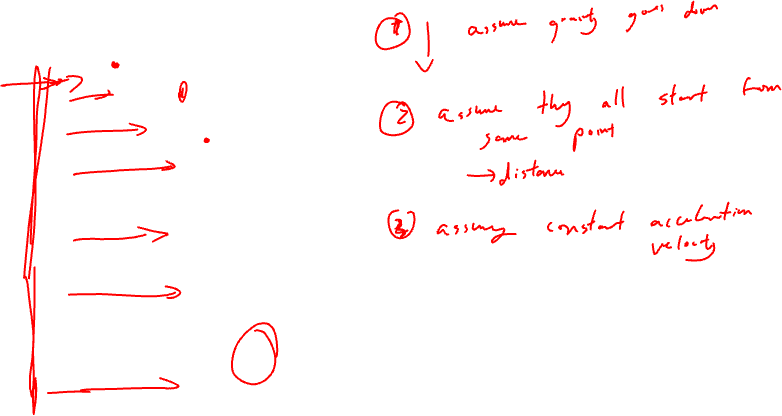 ① assume gravity goes down
② assume they all start from
same point
→ distance
③ assuming constant acceleration
velocity